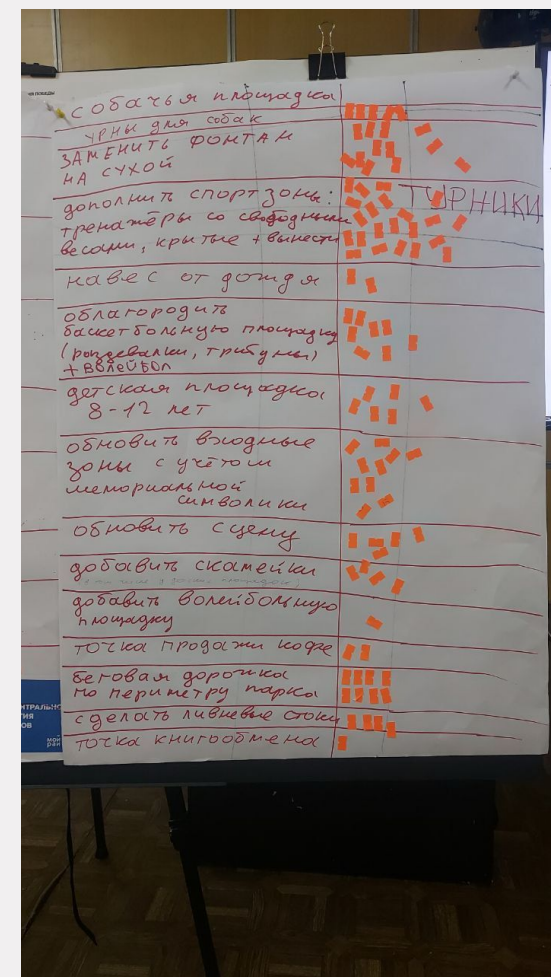 собачья площадка
урны для собак
ЗАМЕНИТЬ ФОНТАН
НА СУХОЙ
дополнить спорт зоны: ТУРНИКИ
тренажёры со свободными
весами, крытые + вынести
навес от дождя
облагородить
баскетбольную площадку
(раздевалки, трибуны)
+ волейбол
детская площадка
8-12 лет
обновить входные
зоны с учётом
мемориальной
символики
обновить сцену
добавить скамейки
добавить волейбольную
площадку
точка продажи кофе
беговая дорожка
по периметру парка
сделать ливневые стоки
точка книгообмена